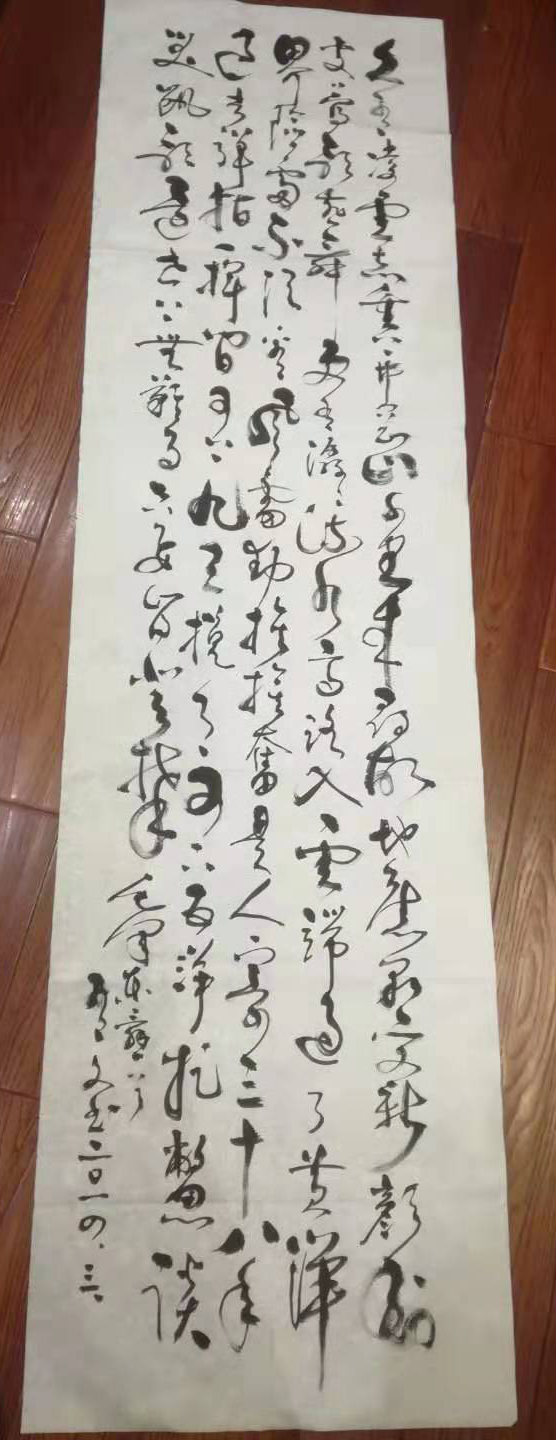 久有凌雲志重上井冈山千里来寻故地舊貌变新颜到
处莺歌燕舞更有潺潺流水高路入雲端過了黄洋
界险處不须看风雷動旌旗奮是人寰三十八年
過去弹指一揮间可上九天揽月可下五洋捉鱉谈
笑凯歌還世上無難事只要肯登攀
毛泽東辭
文书二0一四.三